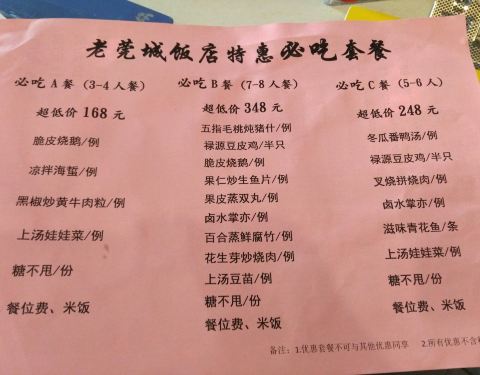 老莞城饭店特惠必吃套餐
必吃 A 餐 (3-4 人餐)
超低价 168 元
脆皮烧鹅/例
凉拌海蜇/例
黑椒炒黄牛肉粒/例
上汤娃娃菜/例
糖不甩/份
餐位费、米饭
必吃 B 餐 (7-8 人餐)
超低价 348 元
五指毛桃炖猪什/例
禄源豆皮鸡/半只
脆皮烧鹅/例
果仁炒生鱼片/例
果皮蒸双丸/例
卤水掌亦/例
百合蒸鲜腐竹/例
花生芽炒烧肉/例
上汤豆苗/例
糖不甩/份
餐位费、米饭
必吃 C 餐 (5-6 人)
超低价 248 元
冬瓜番鸭汤/例
禄源豆皮鸡/半只
叉烧拼烧肉/例
卤水掌亦/例
滋味青花鱼/条
上汤娃娃菜/例
糖不甩/份
餐位费、米饭
备注: 1.优惠套餐不可与其他优惠同享 2.所有优惠不含